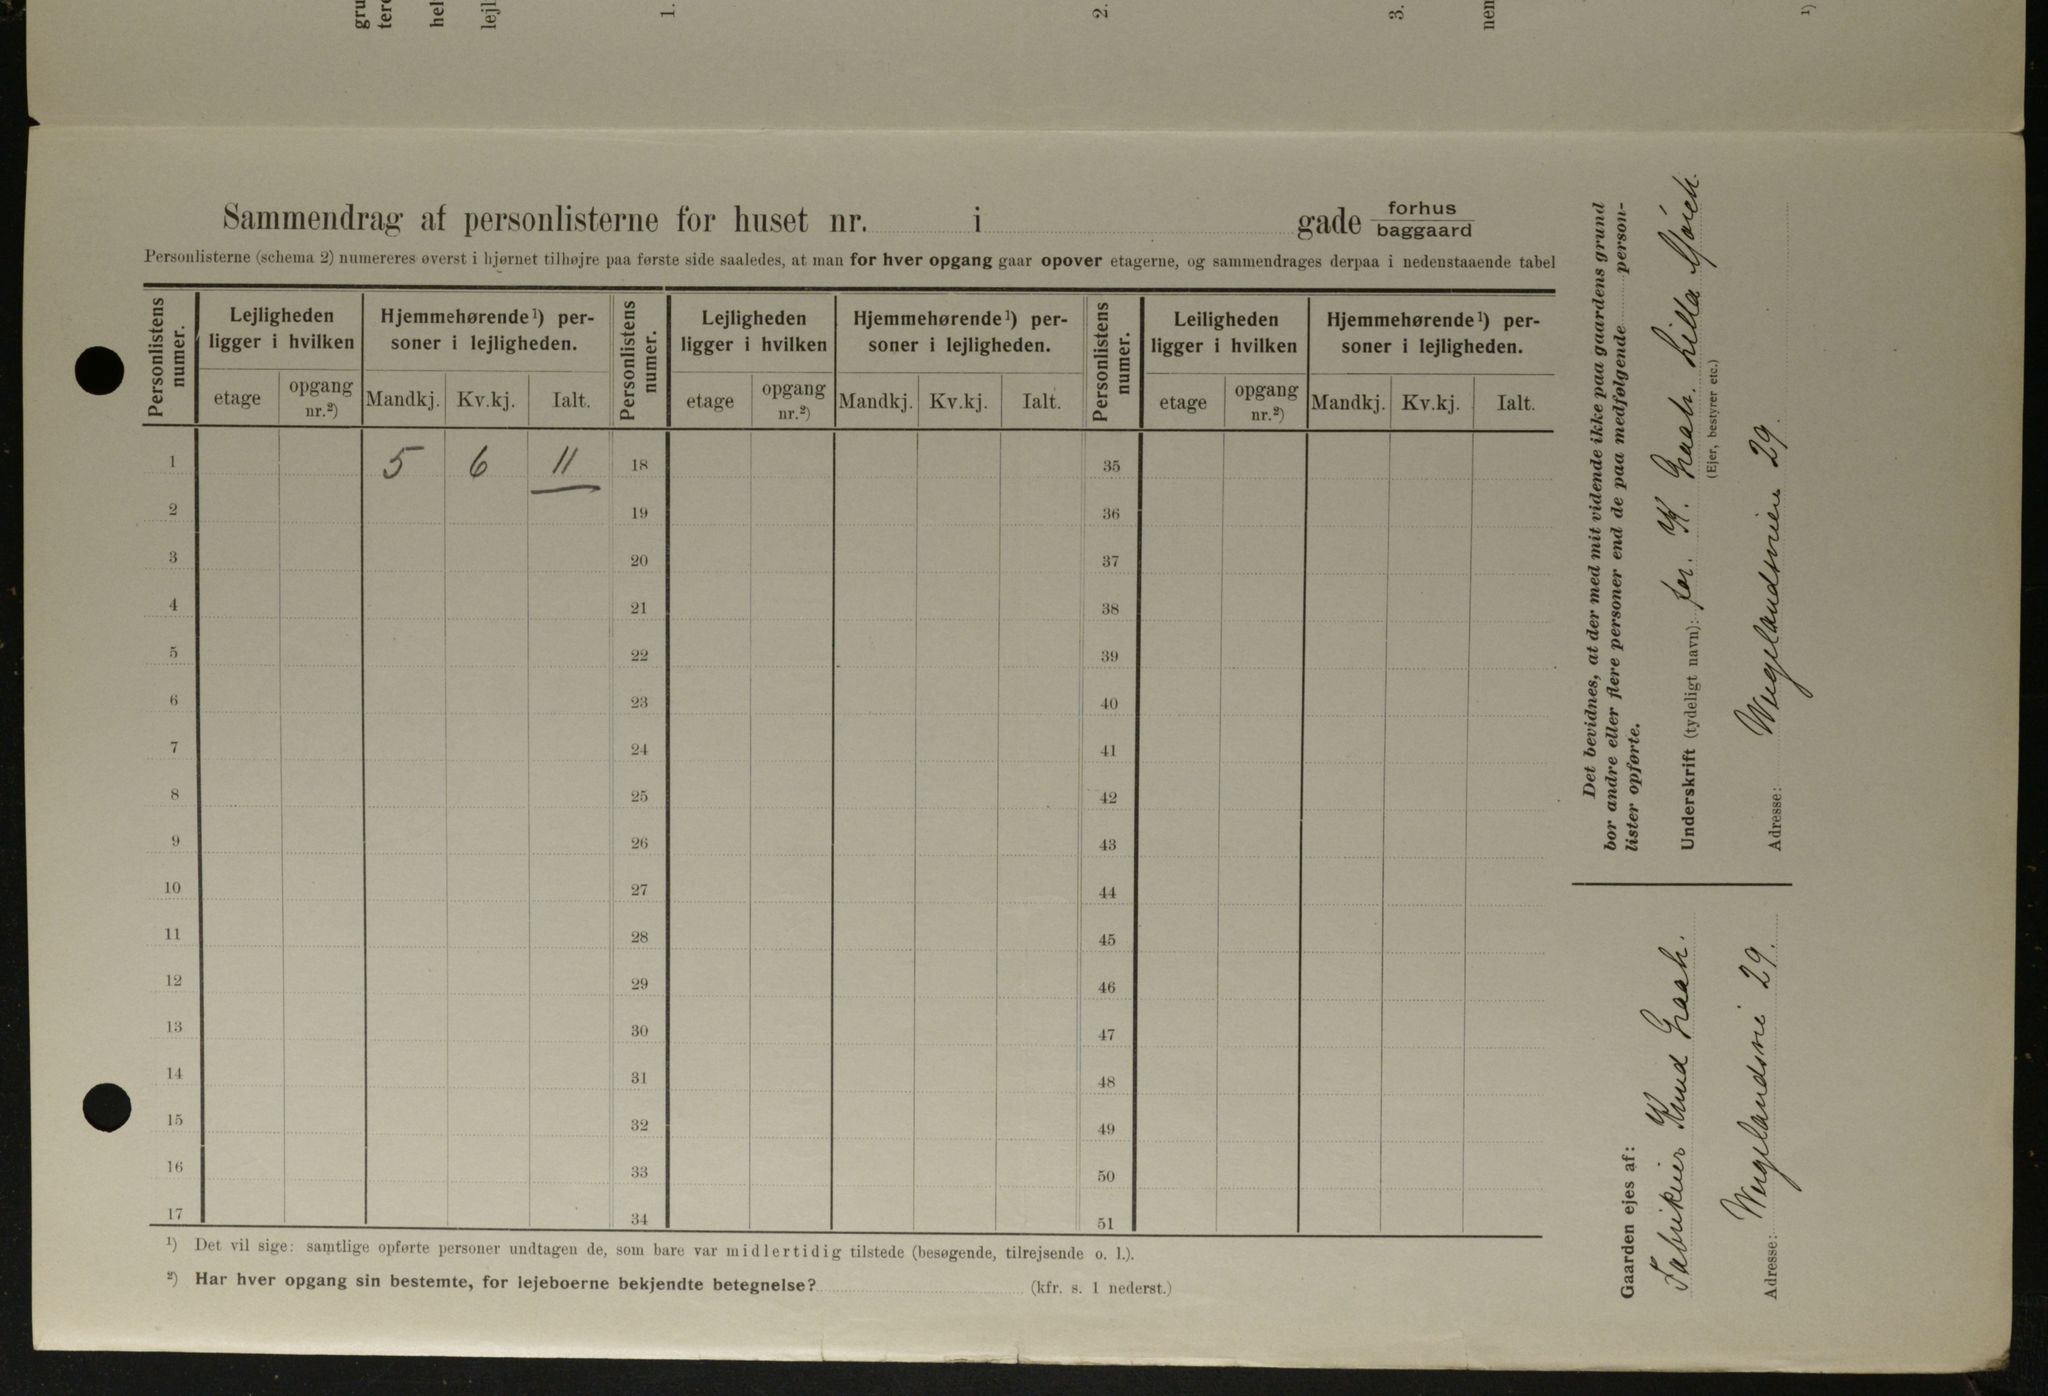 gru
tere
hel
lejl
1.
2.
3.
nem
¹)
Sammendrag af personlisterne for huset nr. i gade forhus
baggaard
Personlisterne (schema 2) numereres øverst i hjørnet tilhøjre paa første side saaledes, at man for hver opgang gaar opover etagerne, og sammendrages derpaa i nedenstaaende tabel
Personlistens numer. Lejligheden ligger i hvilken Hjemmehørende¹) personer i lejligheden. Personlistens numer. Lejligheden ligger i hvilken Hjemmehørende¹) personer i lejligheden. Personlistens numer. Leiligheden ligger i hvilken Hjemmehørende¹) personer i lejligheden.
etage opgang nr.²) Mandkj. Kv.kj. Ialt. etage opgang nr.²) Mandkj. Kv.kj. Ialt. etage opgang nr.²) Mandkj. Kv.kj. Ialt.
1 5 6 11 18 35
2 19 36
3 20 37
4 21 38
5 22 39
6 23 40
7 24 41
8 25 42
9 26 43
10 27 44
11 28 45
12 29 46
13 30 47
14 31 48
15 32 49
16 33 50
17 34 51
¹) Det vil sige: samtlige opførte personer undtagen de, som bare var midlertidig tilstede (besøgende, tilrejsende o. l.).
²) Har hver opgang sin bestemte, for lejeboerne bekjendte betegnelse? (kfr. s. 1 nederst.)
Det bevidnes, at der med mit vidende ikke paa gaardens grund
bor andre eller flere personer end de paa medfølgende person-
lister opførte.
Underskrift (tydeligt navn): for. K. Graah. Lilla
(Ejer, bestyrer etc.)
Adresse: Wergelandsveien 29.
Gaarden ejes af:
Fabrikeier Knud Graah.
Adresse: Wergelandsvei 29.